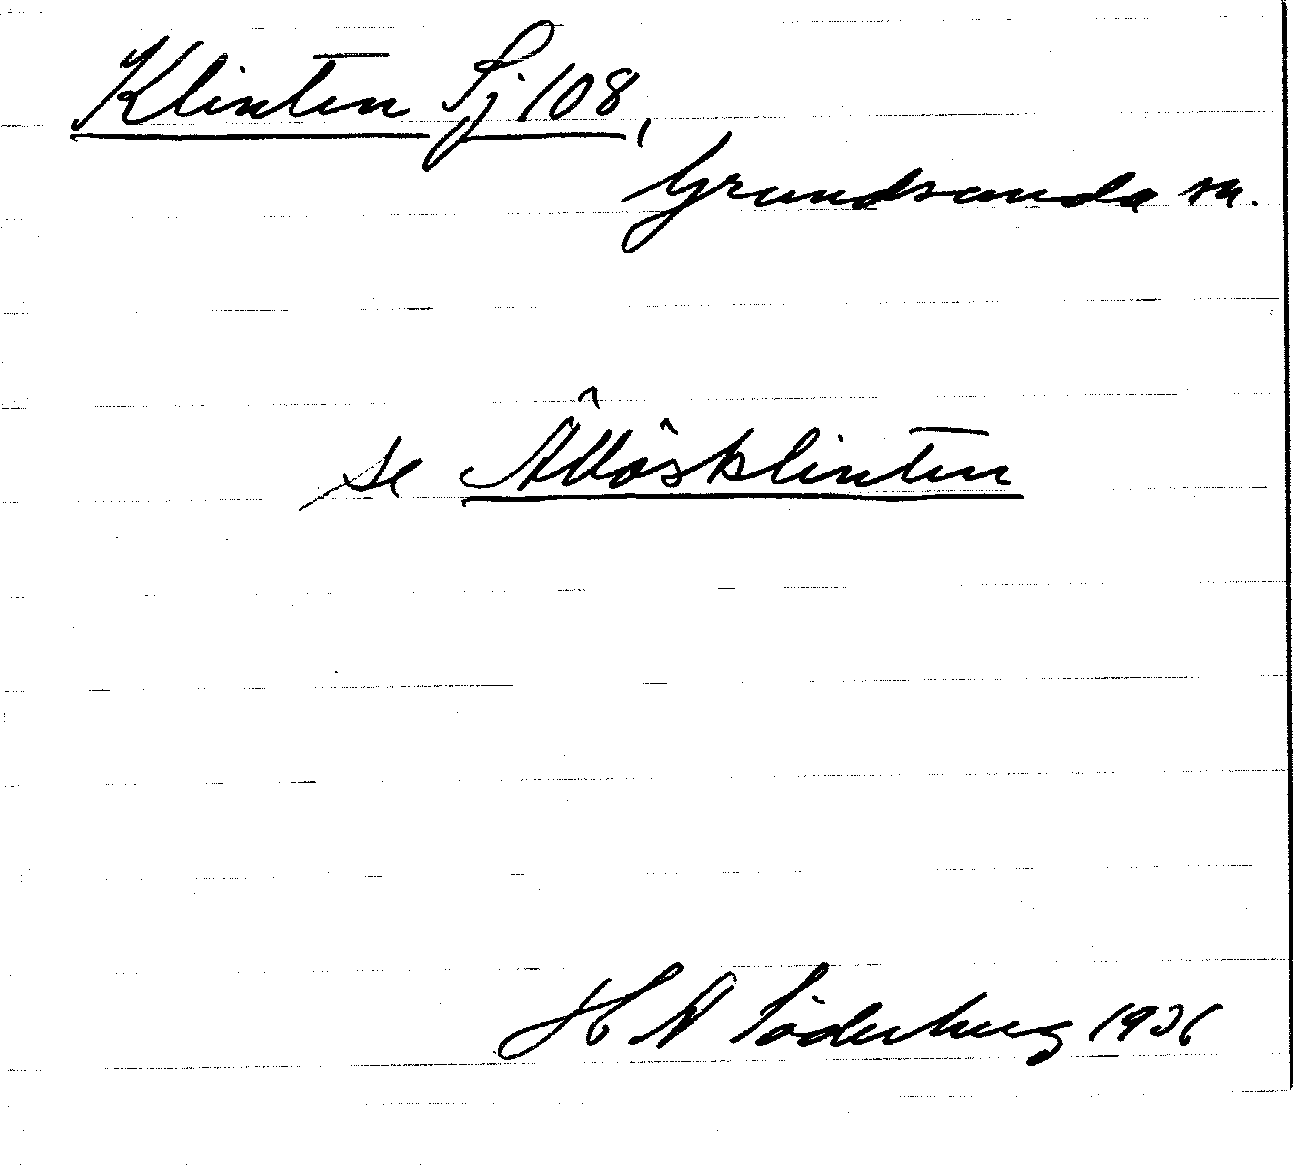 Klinten Sj 108,
Grundsunda sn.
se Ällösklinten
H N Söderberg 1931